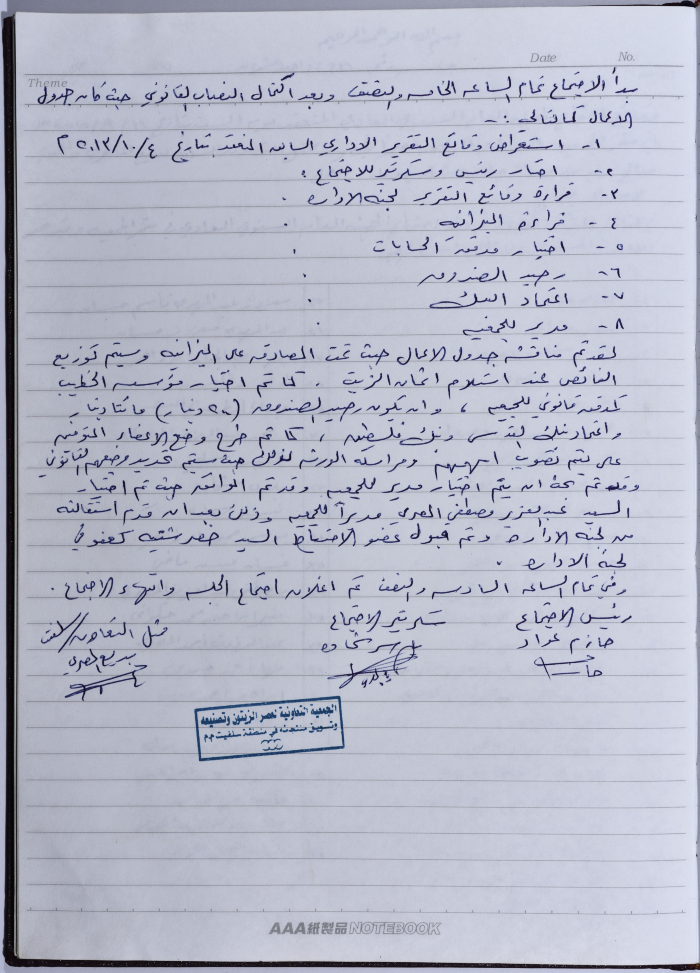 Date No.
Theme
بدأ الاجتماع تمام الساعه الخامسه والنصف وبعد اكتمال النصاب القانوني حيث كان جدول
الاعمال كالتالي :-
١- استعراض وقائع التقرير الاداري السابق المنعقد بتاريخ ٢٠١٣/١٠/٤ م
٢- اختيار رئيس وسكرتير للاجتماع .
٣- قراءة وقائع التقرير لجنة الاداره .
٤- قراءة الميزانيه .
٥- اختيار مدقق الحسابات .
٦- رصيد الصندوق .
٧- اعتماد البنك .
٨- مدير للجمعيه .
لقد تم مناقشة جدول الاعمال حيث تمت المصادقه على الميزانيه وسيتم توزيع
الفائض عند استلام اثمان الزيت . كما تم اختيار مؤسسه الخطيب
كمدقق قانوني للجمعيه ، وان يكون رصيد الصندوق (٢٠٠ دينار) مائتا دينار
واعتماد بنك القدس وبنك فلسطين ، كما تم طرح وضع الاعضاء المتوفين
على يتم تصويب اسهمهم ومراسلة الورثه لذلك حيث سيتم تحديد وضعهم القانوني
وقد تم بحث ان يتم اختيار مدير للجمعيه وقد تم الموافقه حيث تم اختيار
السيد عبد العزيز مصطفى المصري مديراً للجمعيه وذلك بعد ان قدم استقالته
من لجنة الادارة وتم قبول عضو الاحتياط السيد خضر شتيه كعضو في
لجنة الاداره .
وفي تمام الساعه السادسه والنصف تم اعلان اجتماع الجلسه وانتهاء الاجتماع .
رئيس الاجتماع سكرتير الاجتماع ممثل التعاون / سلفيت
حازم عواد شحاده بديع المصري
الجمعية التعاونية لعصر الزيتون وتصنيعه
وتسويق منتجاته في منطقة سلفيت م.م
AAA紙製品NOTEBOOK